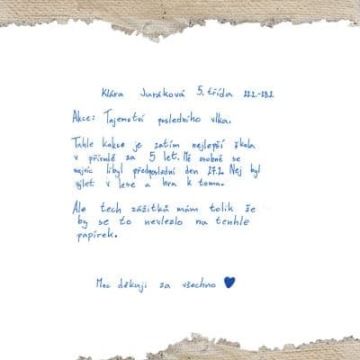 Klára Juráková 5. třída
Akce: Tajemství posledního vlka.
Tahle kakce je zatím nejlepší škola
v přírodě za 5 let. Mě osobně se
nejvíc líbyl předposlední den 27.2. Nej byl
výlet v lese a hra k tomu.
Ale tech zážitků mám tolik že
by se to nevlezlo na tenhle
papírek.
Moc děkuji za všechno